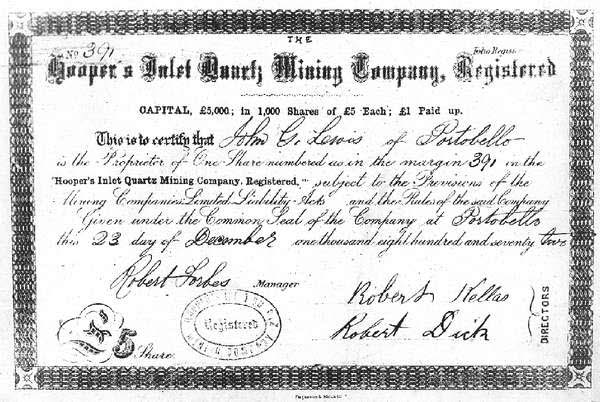 THE
No 391
Hooper's Inlet Quartz Mining Company, Registered
CAPITAL, £5,000; in 1,000 Shares of £5 Each; £1 Paid up.
This is to certify that John G. Lewis of Portobello
is the Proprietor of One Share numbered as in the margin 391 in the
"Hooper's Inlet Quartz Mining Company, Registered," subject to the Provisions of the
Mining Companies Limited Liability Acts and the Rules of the said Company
Given under the Common Seal of the Company at Portobello
this 23 day of December one thousand eight hundred and seventy two
Robert Forbes Manager
Robert Kellas
Robert Dick
DIRECTORS
Registered
£5 Share.